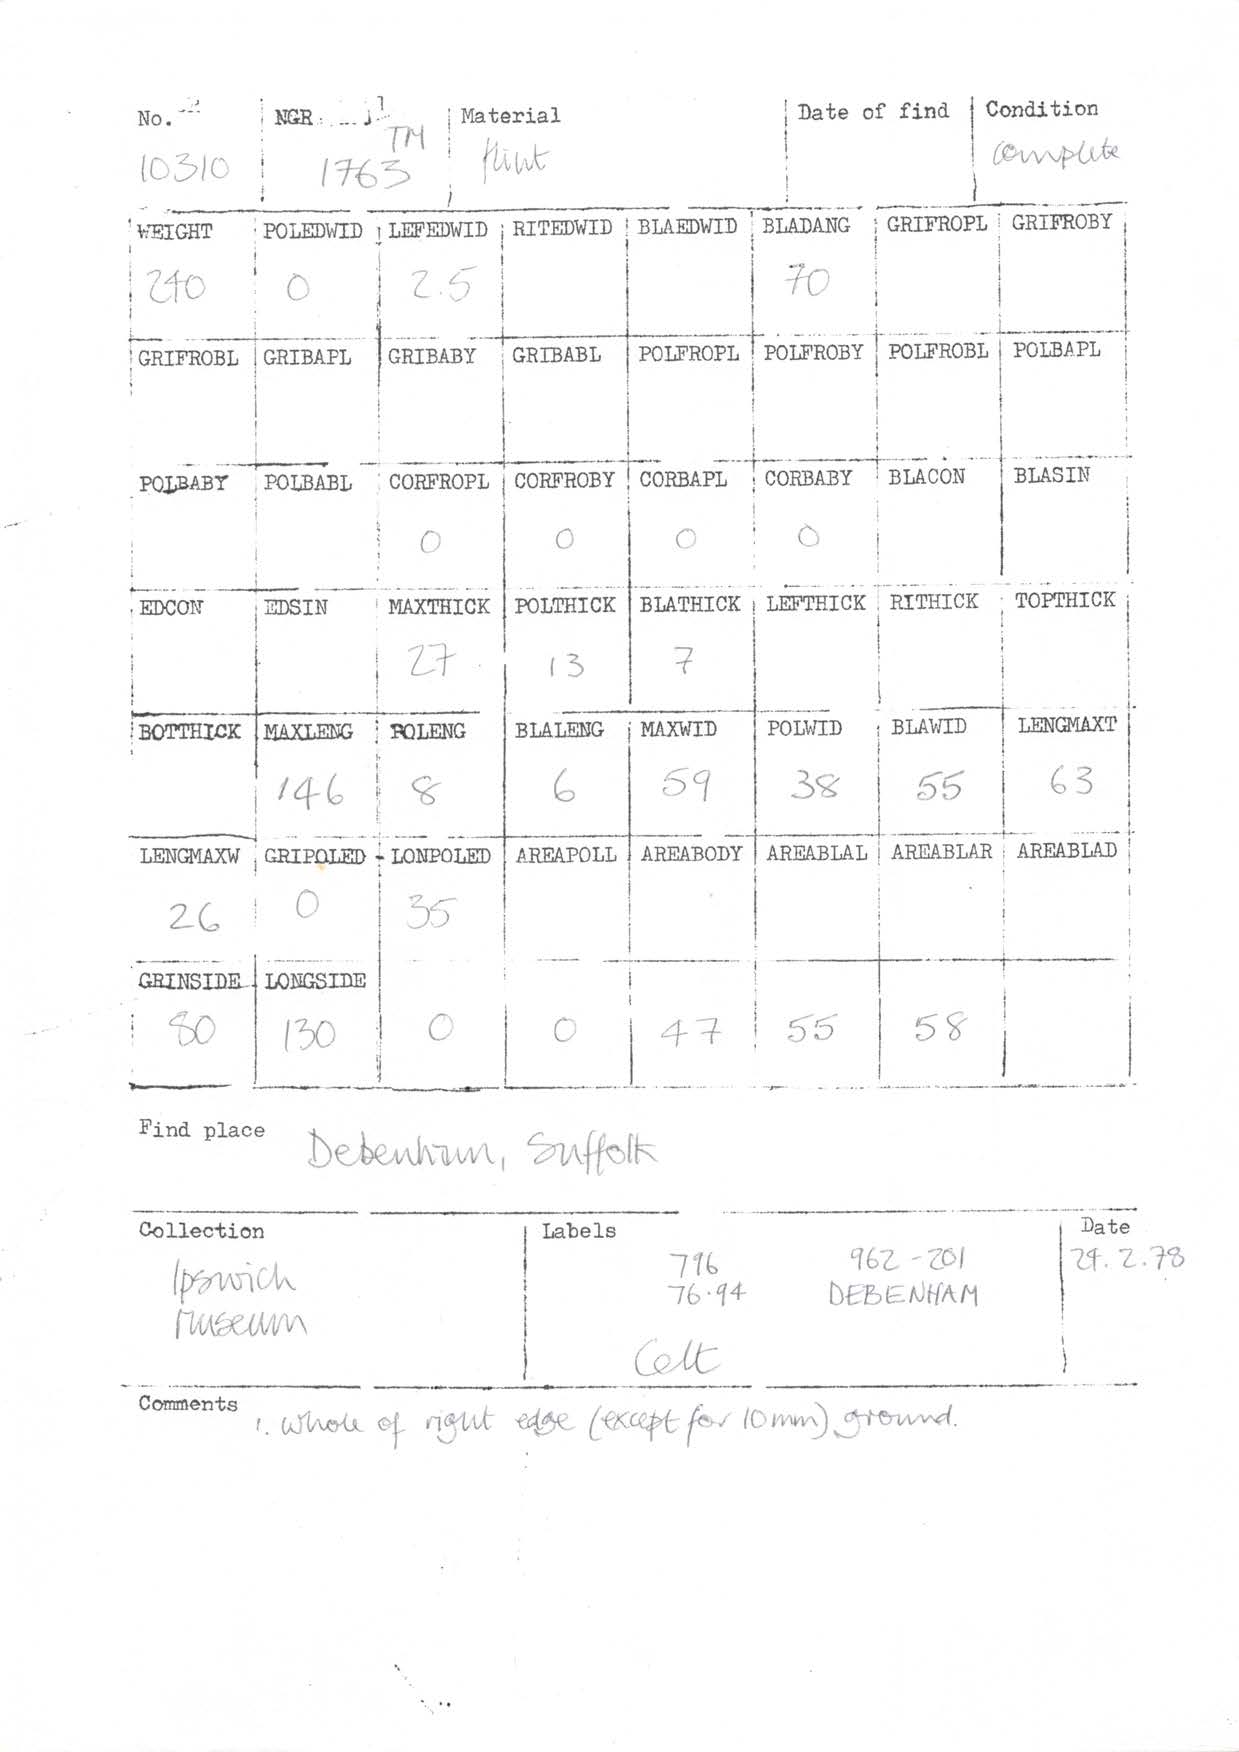 No. NGR Material Date of find Condition
10310 TM 1763 flint complete
WEIGHT POLEDWID LEFEDWID RITEDWID BLAEDWID BLADANG GRIFROPL GRIFROBY
240 0 2.5 70
GRIFROBL GRIBAPL GRIBABY GRIBABL POLFROPL POLFROBY POLFROBL POLBAPL
POLBABY POLBABL CORFROPL CORFROBY CORBAPL CORBABY BLACON BLASIN
0 0 0 0
EDCON EDSIN MAXTHICK POLTHICK BLATHICK LEFTHICK RITHICK TOPTHICK
27 13 7
BOTTHICK MAXLENG POLENG BLALENG MAXWID POLWID BLAWID LENGMAXT
146 8 6 59 38 55 63
LENGMAXW GRIPOLED LONPOLED AREAPOLL AREABODY AREABLAL AREABLAR AREABLAD
26 0 35
GRINSIDE LONGSIDE
80 130 0 0 47 55 58
Find place Debenham, Suffolk
Collection Labels Date
Ipswich 796 962-201 24.2.78
Museum 76.94 DEBENHAM
Celt
Comments 1. whole of right edge (except for 10mm) ground.